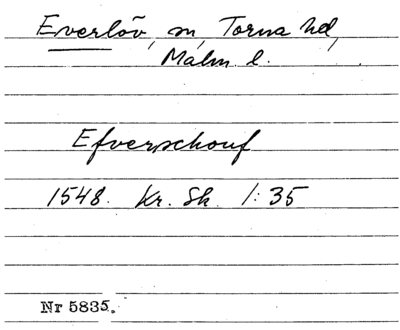 Everlöv, sn, Torna hd,
Malm l.
Efverschouf
1548. Kr. Sk. 1:35
Nr 5835.